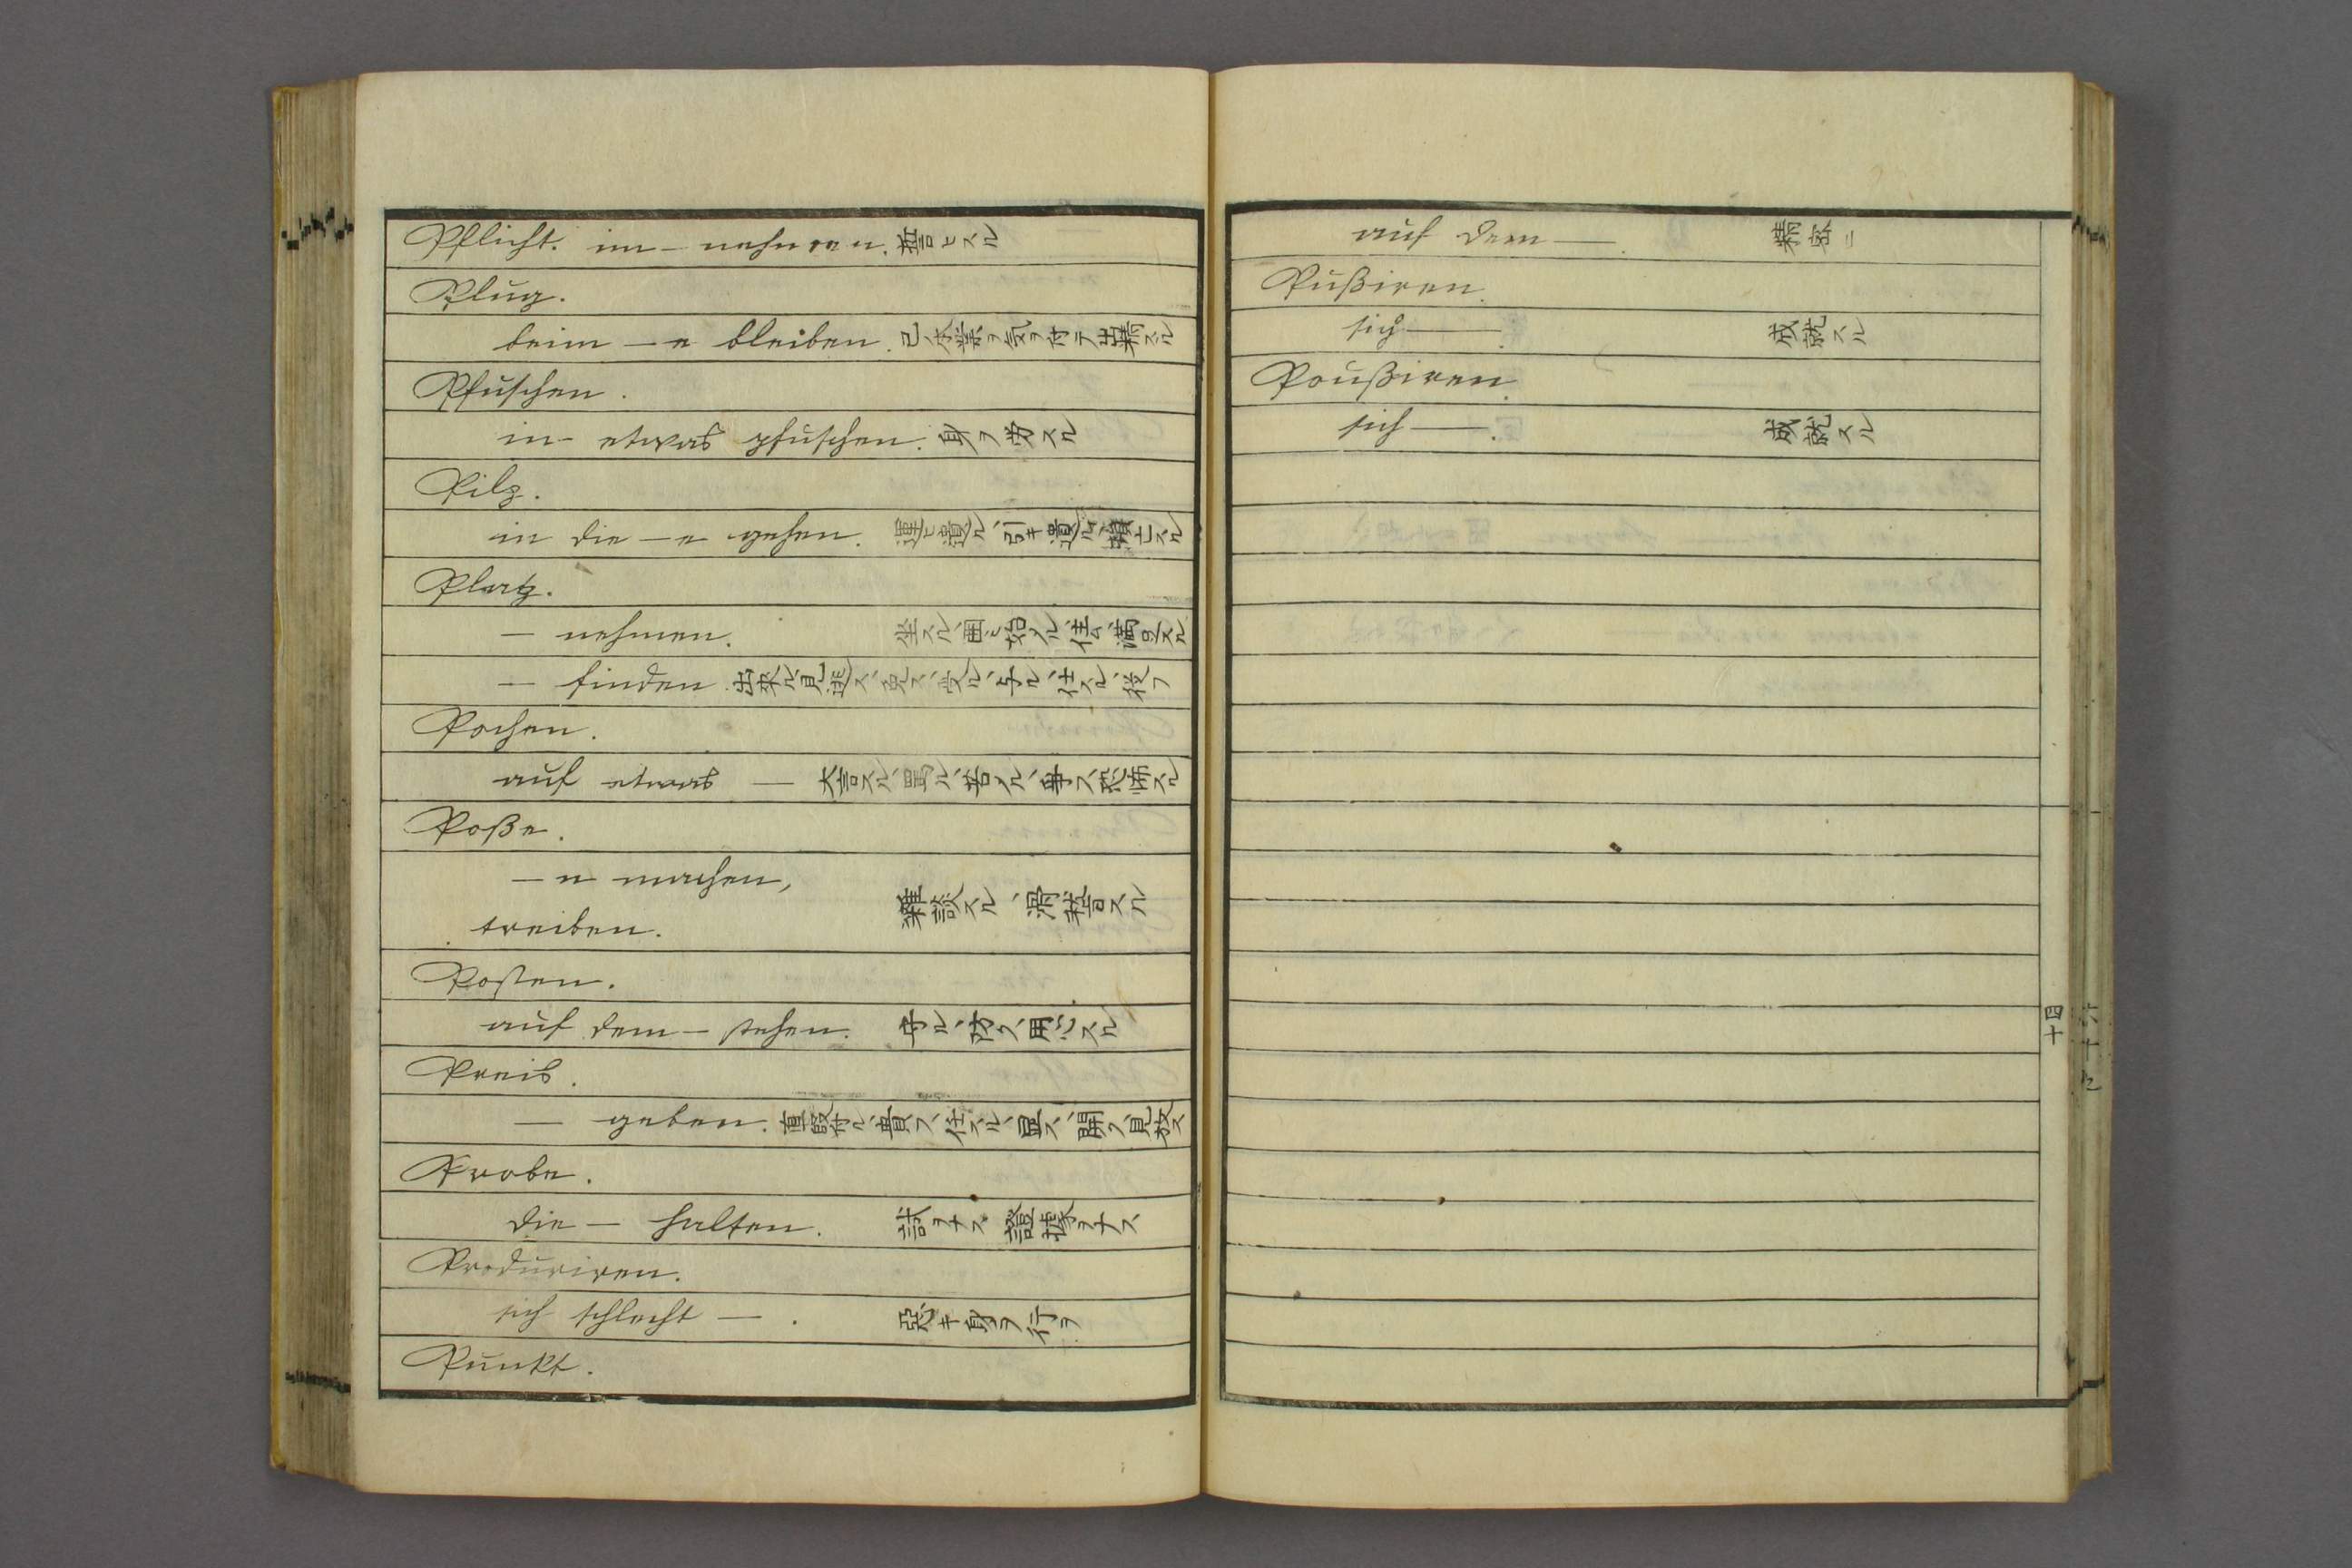 Pflicht. im — nehmen. 誓ヒスル
Plug.
beim — e bleiben. 己ノ本業ヲ気ヲ付テ出精スル
Pfuschen.
in etwas pfuschen. 身ヲ労スル
Pilz.
in die — e gehen.
Platz.
— nehmen. 坐スル、 始メル、住ム、満足スル
— finden 出来ル、見逃ス、免ス、受ル、与ル、仕スル、従フ
Pochen.
auf etwas — 大言スル、罵ル、苦メル、争フ、恐怖スル
Poße.
— n machen,
treiben. 雑談スル、滑稽スル
Posten.
auf dem — stehen. 守ル、防ク、用心スル
Preis.
— geben. 直段付ル、費フ、任スル、显ス、開ク、見放ス
Probe.
die — halten. 試ヲナス 證拠ヲナス
Produciren.
sich schlecht — . 惡キ身ヲ行ヲ
Punkt.
auf dem —. 精密ニ
Pußiren.
sich —. 成就スル
Poußiren.
sich —. 成就スル
四十